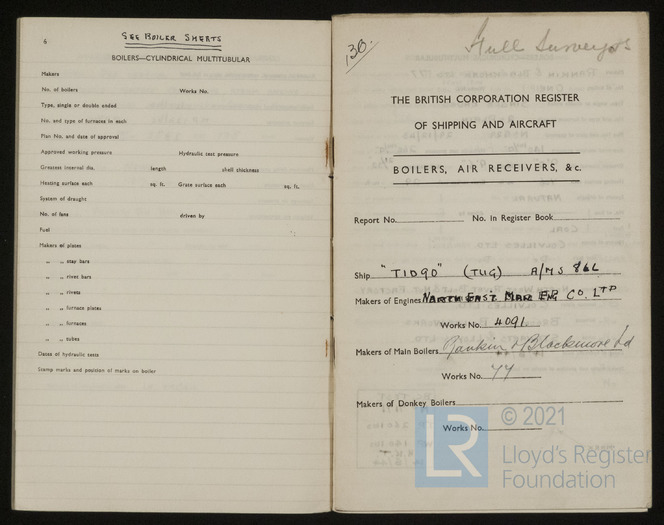 6
SEE BOILER SHEETS
BOILERS—CYLINDRICAL MULTITUBULAR
Makers
No. of boilers Works No.
Type, single or double ended
No. and type of furnaces in each
Plan No. and date of approval
Approved working pressure Hydraulic test pressure
Greatest internal dia. length shell thickness
Heating surface each sq. ft. Grate surface each sq. ft.
System of draught
No. of fans driven by
Fuel
Makers of plates
„ „ stay bars
„ „ rivet bars
„ „ rivets
„ „ furnace plates
„ „ furnaces
„ „ tubes
Dates of hydraulic tests
Stamp marks and position of marks on boiler
130. Hull Surveyors
THE BRITISH CORPORATION REGISTER
OF SHIPPING AND AIRCRAFT
BOILERS, AIR RECEIVERS, &c.
Report No. No. in Register Book
Ship "TID90" (TUG) A/MS 862
Makers of Engines NORTH EAST MAR ENG CO. LTD
Works No. 4091.
Makers of Main Boilers Rankin & Blackmore Ld
Works No. 44
Makers of Donkey Boilers
Works No.
LR © 2021
Lloyd's Register
Foundation